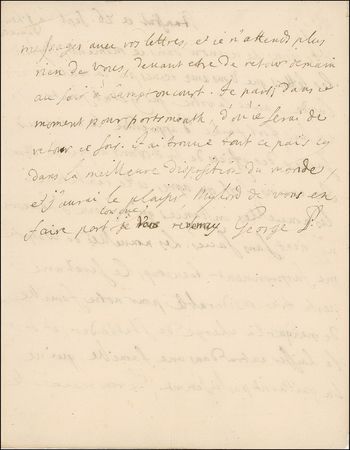 messager avec vos lettres, et je n'attend plus
rien de vous, devant etre de retour demain
au soir a hamptoncourt. Je parts dans ce
moment pour portsmouth, d'ou je serai de
retour ce soir. J'ai trouvé tout ce pais cy
dans la meilleure disposition du monde,
et j'aurai le plaisir Mylord de vous en
lorsque
faire part je vous reverray George P.